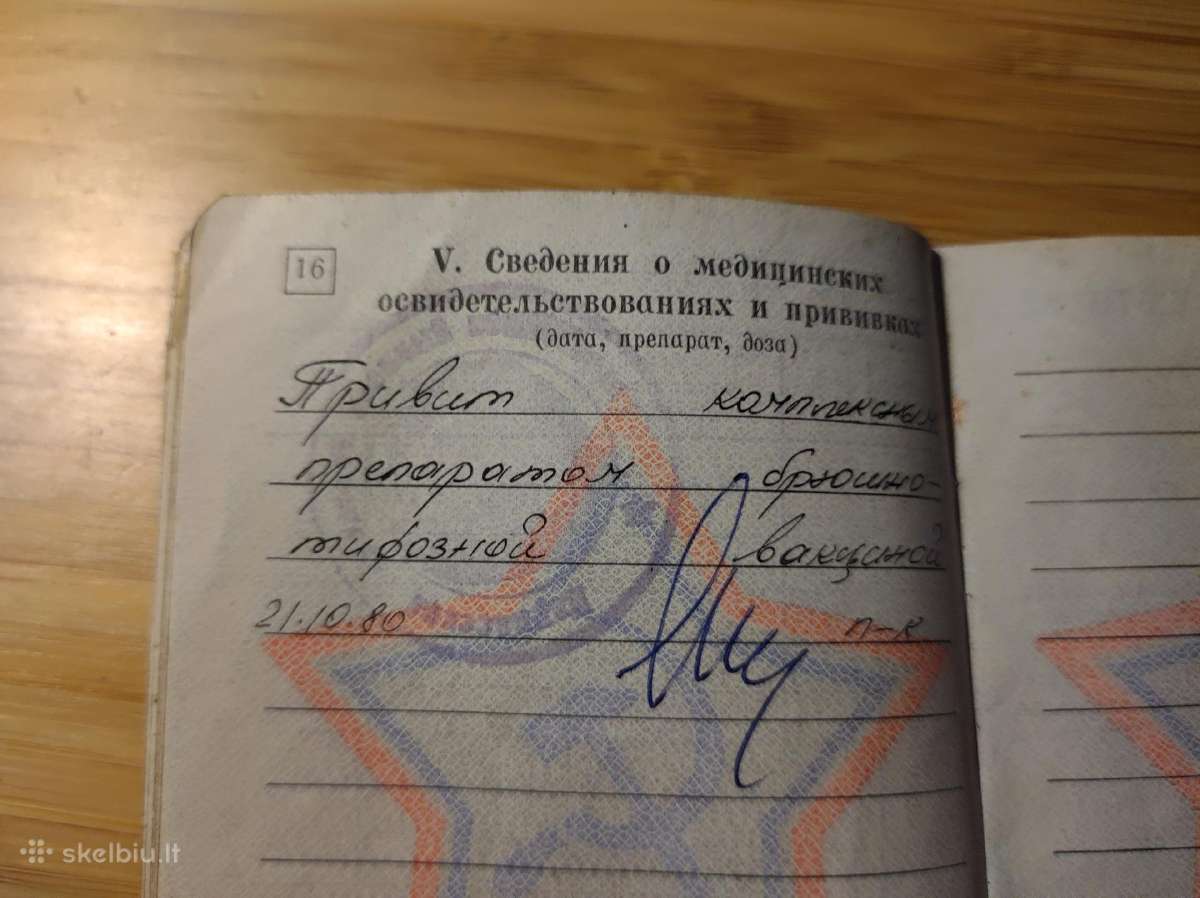 16
V. Сведения о медицинских
освидетельствованиях и прививках
(дата, препарат, доза)
Привит комплексным
препаратом брюшно-
тифозной вакциной
21.10.80 п-к
skelbiu.lt